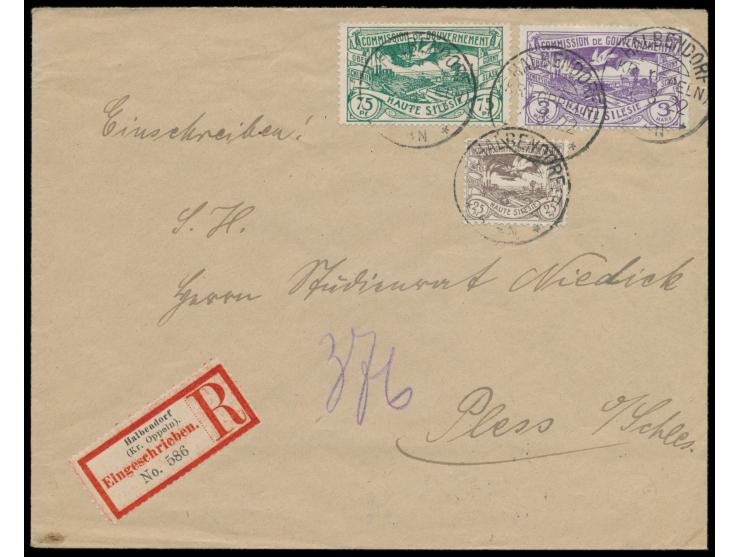 COMMISSION DE GOUVERNEMENT
75 HAUTE SILESIE 75
COMMISSION DE GOUVERNEMENT
3 HAUTE SILESIE 3
HALBENDORF
25 HAUTE SILESIE 25
Einschreiben!
S. H.
Herrn Studienrat Niedick
376
Pless o/Schles.
Halbendorf
(Kr. Oppeln).
Eingeschrieben.
No. 586
R